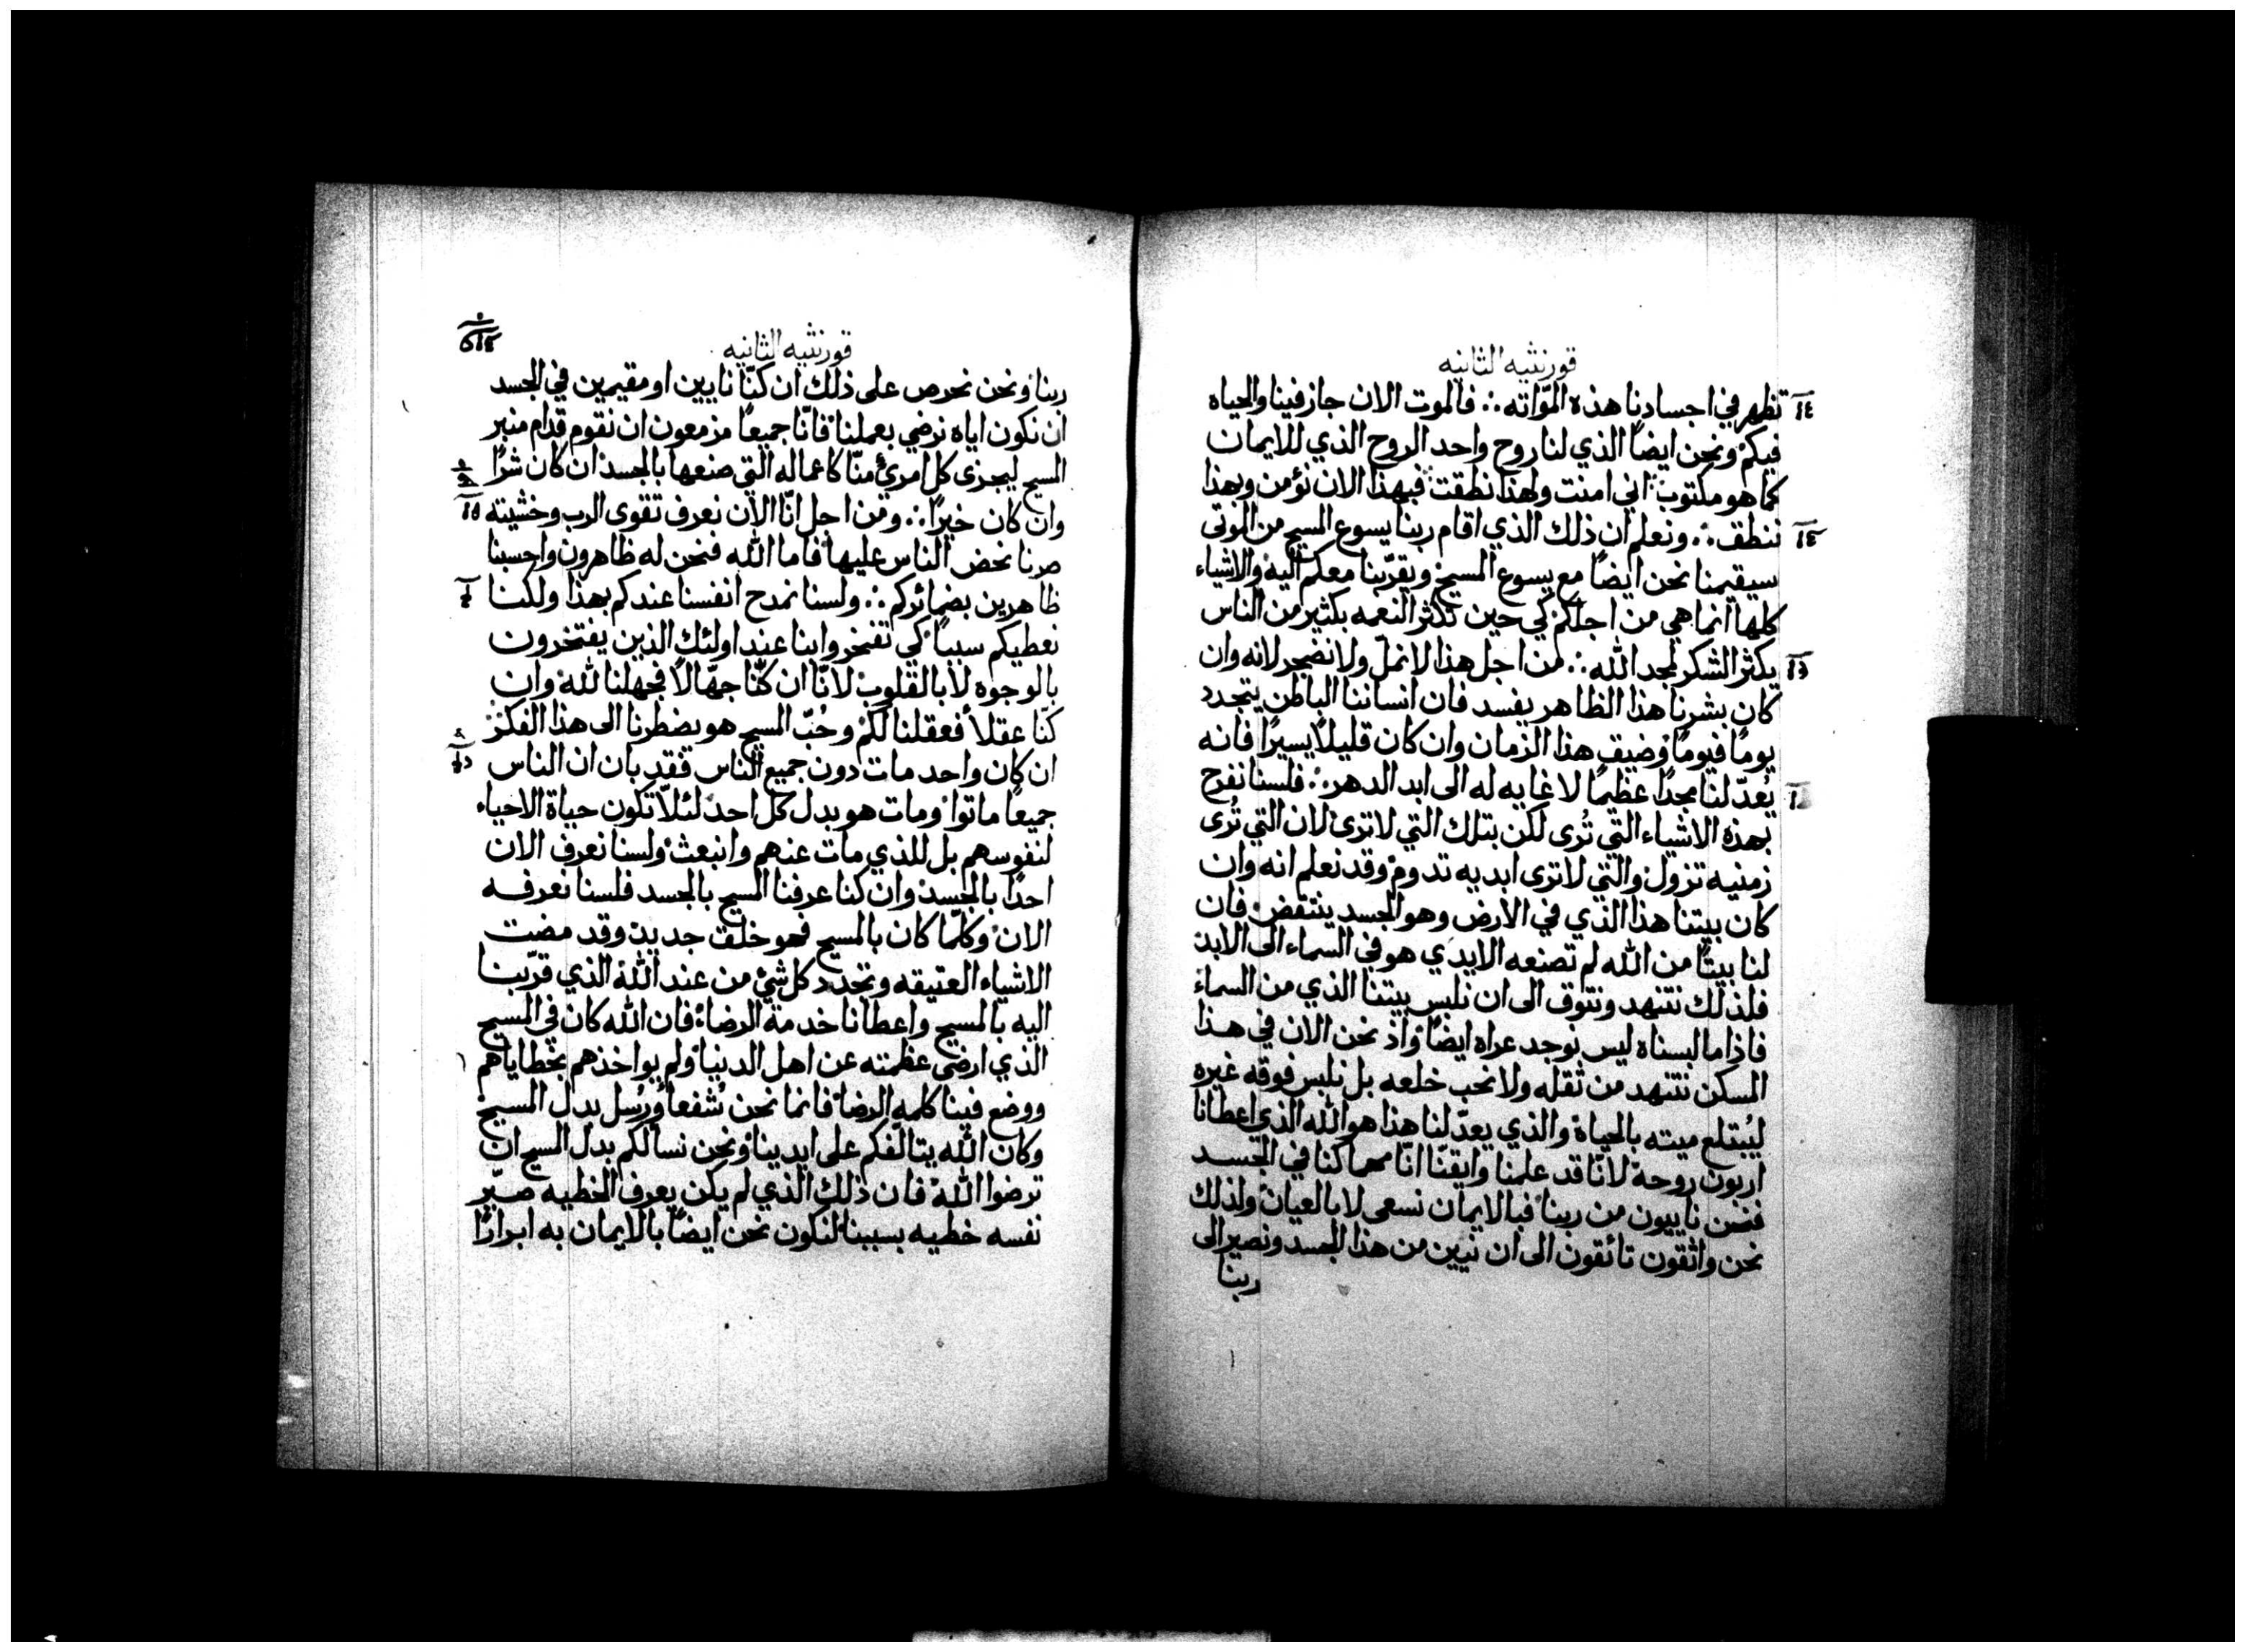 قورنثيه الثانيه
تظهر في اجسادنا هذه الموّاته ∴ فالموت الان جاز فينا والحياه
فيكم ونحن ايضًا الذي لنا روح واحد الروح الذي للايمان
كما هو مكتوب اني امنت ولهذا نطقت فبهذا الان نؤمن وبهذا
ننطق ∴ ونعلم ان ذلك الذي اقام ربنا يسوع المسيح من الموتى
سيقيمنا نحن ايضًا مع يسوع المسيح ويقرّبنا معكم اليه والاشياء
كلها انما هي من اجلكم كي حين تكثر النعمه بكثير من الناس
يكثر الشكر لمجد الله ∴ من اجل هذا لا نملّ ولا نضجر لانه وان
كان بشرنا هذا الظاهر يفسد فان انساننا الباطن يتجدد
يومًا فيومًا وضيق هذا الزمان وان كان قليلًا يسيرًا فانه
يُعدّ لنا مجدًا عظيمًا لا غايه له الى ابد الدهر ∴ فلسنا نفرح
بهذه الاشياء التي تُرى لكن بتلك التي لا ترى لان التي تُرى
زمنيه تزول والتي لا ترى ابديه تدوم وقد نعلم انه وان
كان بيتنا هذا الذي في الارض وهو الجسد ينتقض فان
لنا بيتًا من الله لم تصنعه الايدي هو في السماء الى الابد
فلذلك نتنهد ونتوق الى ان نلبس بيتنا الذي من السماء
فاذا ما لبسناه ليس نوجد عراه ايضًا واذ نحن الان في هذا
المسكن نتنهد من ثقله ولا نحب خلعه بل نلبس فوقه غيره
ليُبتلع ميته بالحياة والذي يعدّ لنا هذا هو الله الذي اعطانا
اربون روحه لانّا قد علمنا وايقنّا انّا مهما كنا في الجسد
فنحن ناييون من ربنا فبالايمان نسعى لا بالعيان ولذلك
نحن واثقون تائقون الى ان نبين من هذا الجسد ونصير الى
ربنا
قورنثيه الثانيه
ربنا ونحن نحرص على ذلك ان كنّا نايين او مقيمين في الجسد
ان نكون اياه نرضي بعملنا فانّا جميعًا مزمعون ان نقوم قدام منبر
المسيح ليجزى كل امرئ منّا كاعماله التي صنعها بالجسد ان كان شرًا
وان كان خيرًا ∴ ومن اجل انّا الان نعرف تقوى الرب وخشيته
صرنا نحض الناس عليها فاما الله فنحن له ظاهرون واحسبنا
ظاهرين بضمائركم ∴ ولسنا نمدح انفسنا عندكم بهذا ولكنا
نعطيكم سببًا كي تفتخروا بنا عند اولئك الذين يفتخرون
بالوجوه لا بالقلوب لانّا ان كنّا جهّالًا فجهلنا لله وان
كنّا عقلا فعقلنا لكم وحُبّ المسيح هو يضطرنا الى هذا الفكر
ان كان واحد مات دون جميع الناس فقد بان ان الناس
جميعًا ماتوا ومات هو بدل كل احد لئلّا تكون حياة الاحياء
لنفوسهم بل للذي مات عنهم وانبعث ولسنا نعرف الان
احدًا بالجسد وان كنا عرفنا المسيح بالجسد فلسنا نعرفه
الان وكلما كان بالمسيح فهو خلق جديد وقد مضت
الاشياء العتيقه وتجدد كل شئ من عند الله الذي قرّبنا
اليه بالمسيح واعطانا خدمة الرضا فان الله كان في المسيح
الذي ارضى عظمته عن اهل الدنيا ولم يواخذهم بخطاياهم
ووضع فينا كلمه الرضا فانما نحن شُفعا ورُسل بدل المسيح
وكان الله يتالّفكم على ايدينا ونحن نسالكم بدل المسيح ان
ترضوا الله فان ذلك الذي لم يكن يعرف الخطيه صيّر
نفسه خطيه بسببنا لنكون نحن ايضًا بالايمان به ابرارًا